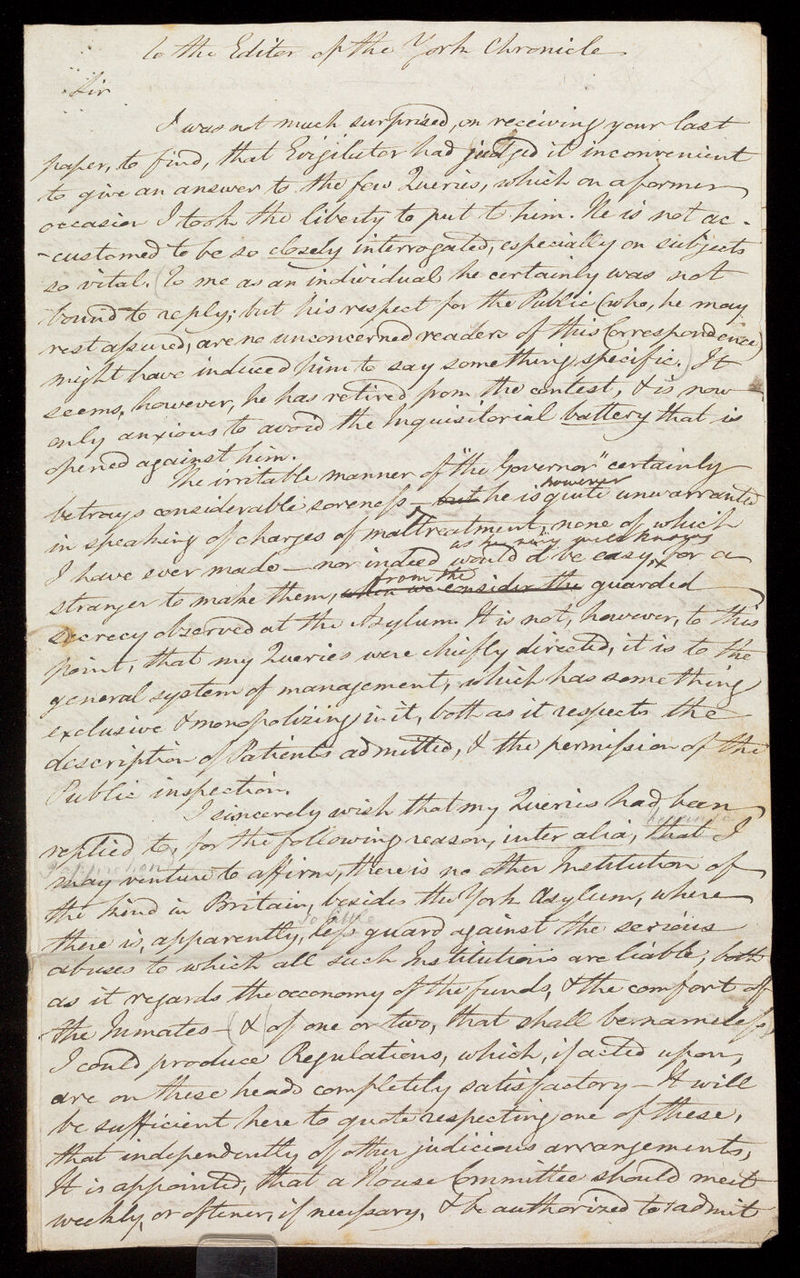 to the Editor of the York Chronicle
Sir
I was not much surprised, on receiving your last
paper, to find, that Evigilator had judged it inconvenient
to give an answer to the few Queries, which on a former
occasion I took the liberty to put to him. He is not ac-
-customed to be so closely interrogated, especially on subjects
so vital. (To me as an individual he certainly was not
bound to reply; but his respect for the Public (who, he may
rest assured, are no unconcerned readers of this Correspondence)
might have induced him to say something specific.) It
seems, however, he has retired from the contest, & is now
only anxious to avoid the Inquisitorial battery that is
opened against him.
The irritable manner of "the Governor" certainly
however
betrays considerable soreness — but he is quite unwarranted
in speaking of charges of maltreatment, none of which
I have ever made — nor indeed would it be easy, for a
as he very well knows
stranger to make them, when we consider the guarded
from the
secrecy observed at the Asylum. It is not, however, to this
point, that my Queries were chiefly directed, it is to the
general system of management, which has something
exclusive & monopolizing in it, both as it respects the
description of Patients admitted, & the permission of the
Public inspection.
I sincerely wish that my Queries had been
replied to, for the following reason, inter alia, that I
because
may venture to affirm, there is no other Institution of
the kind in Britain, besides the York Asylum, where
there is, apparently, less guard against the serious
so little
abuses to which all such Institutions are liable; both
as it regards the oeconomy of the funds, & the comfort of
the Inmates — (& (of one or two, that shall be nameless)
I could produce Regulations, which, if acted upon,
are on these heads completely satisfactory — It will
be sufficient here to quote respecting one of these,
that independently of other judicious arrangements,
It is appointed, that a House Committee should meet
weekly, or oftener, if necessary, & be authorized to admit